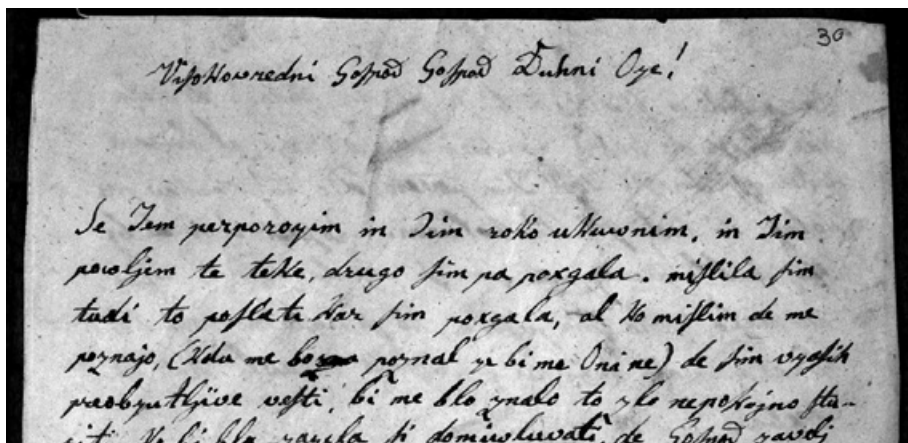 30
Visokovredni Gospod Gospod Duhni Oze!
Se Jem perporozim in Jim roko ukuvnim, in Jim
povoljem te teke, drugo sim pa poxgala. mislila sim
tudi to poslati kar sim poxgala, al ko mislim de me
poznajo, (kdu me poznal ze bi me Oni ne) de sim vzasih
preobzutljive vesti, bi me blo znalo to zlo nepokojno stu-
rit. Ko bi bla zazela si domiuluvati, de Gospod zavolj